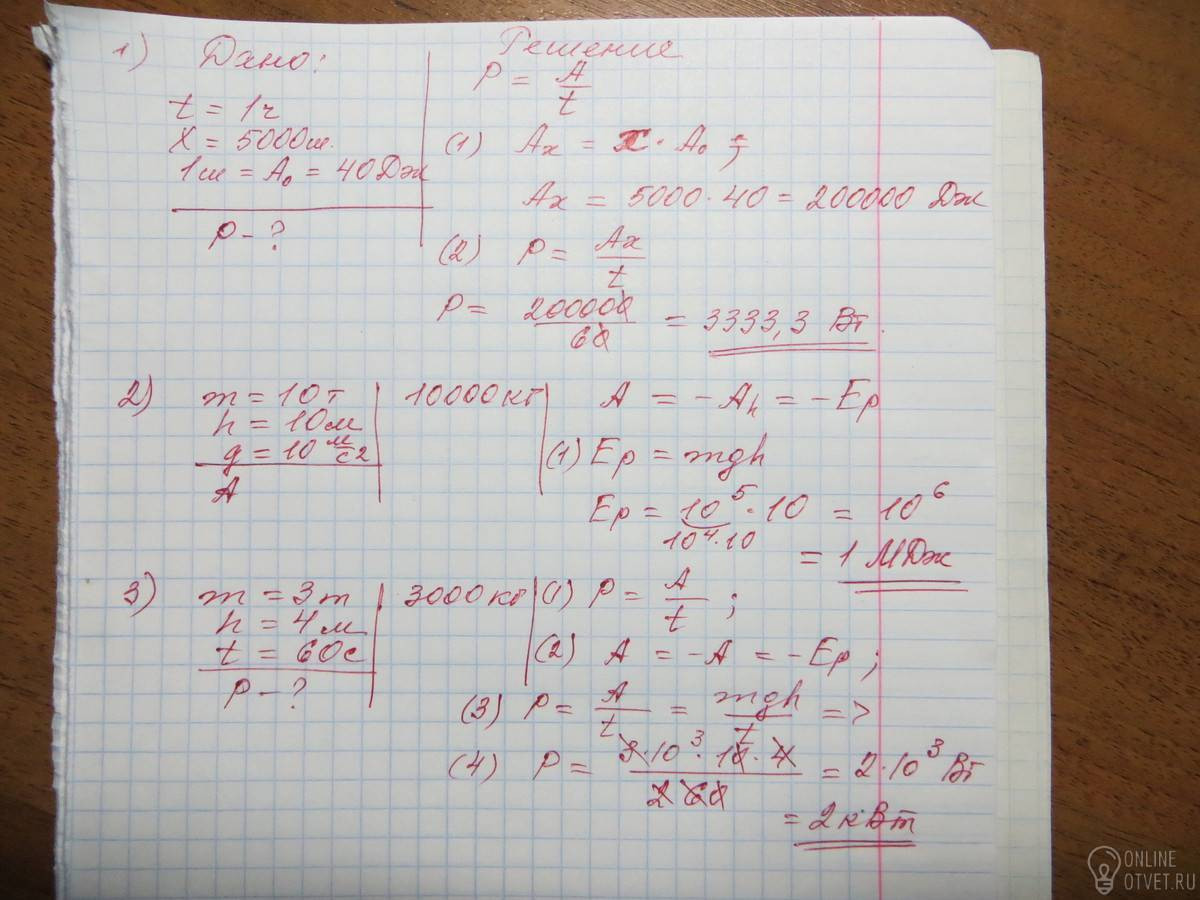 1) Дано:
t = 1ч
X = 5000ш.
1ш = A₀ = 40 Дж
P - ?
Решение
P = A/t
(1) Aₓ = x · A₀ ;
Aₓ = 5000 · 40 = 200000 Дж
(2) P = Aₓ/t
P = 200000/60 = 3333,3 Вт.
2) m = 10т | 10000 кг
h = 10м
g = 10 м/с2
A
A = -Aₕ = -Eр
(1) Eр = mgh
Eр = 10⁵ · 10 = 10⁶
10⁴·10
= 1 МДж
3) m = 3т | 3000 кг
h = 4м
t = 60с
P - ?
(1) P = A/t ;
(2) A = -A = -Eр ;
(3) P = A/t = mgh/t =>
(4) P = 3·10³·10·4/2 60 = 2·10³ Вт
= 2 кВт
ONLINE
OTVET.RU